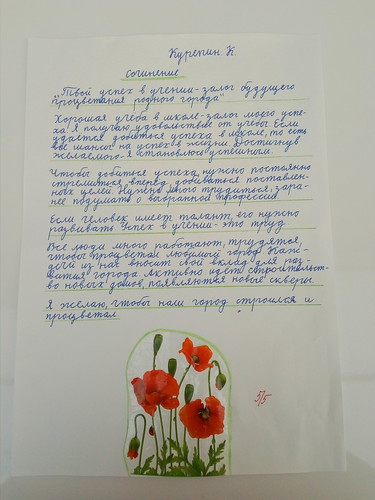 Курепин. К.
Сочинение
„Твой успех в учении - залог будущего
процветания родного города"
Хорошая учеба в школе - залог моего успе-
ха. Я получаю удовольствие от учебы. Если
удается добиться успеха в школе, то есть
все шансы на успех в жизни. Достигнув
желаемого - я становлюсь успешным.
Чтобы добиться успеха, нужно постоянно
стремиться вперед, добиваться поставлен-
ных целей. Нужно много трудиться, зара-
нее подумать о выбранной профессии.
Если человек имеет талант, его нужно
развивать. Успех в учении - это труд.
Все люди много работают, трудятся,
чтобы процветал любимый город. Каж-
дый из нас вносит свой вклад для раз-
вития города. Активно идет строительст-
во новых домов, появляются новые скверы.
Я желаю, чтобы наш город строился и
процветал.
5/5